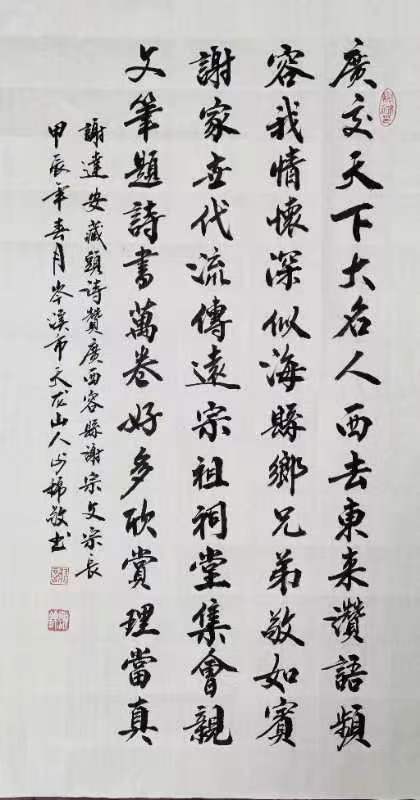 廣交天下大名人西去東来讚語頻
容我情懷深似海縣鄉兄弟敬如賓
謝家世代流傳遠宗祖祠堂集會親
文筆題詩書萬卷好多欣賞理當真
謝達安藏頭詩贊廣西容縣謝宗文宗長
甲辰年春月岑溪市天龙山人少錦敬书